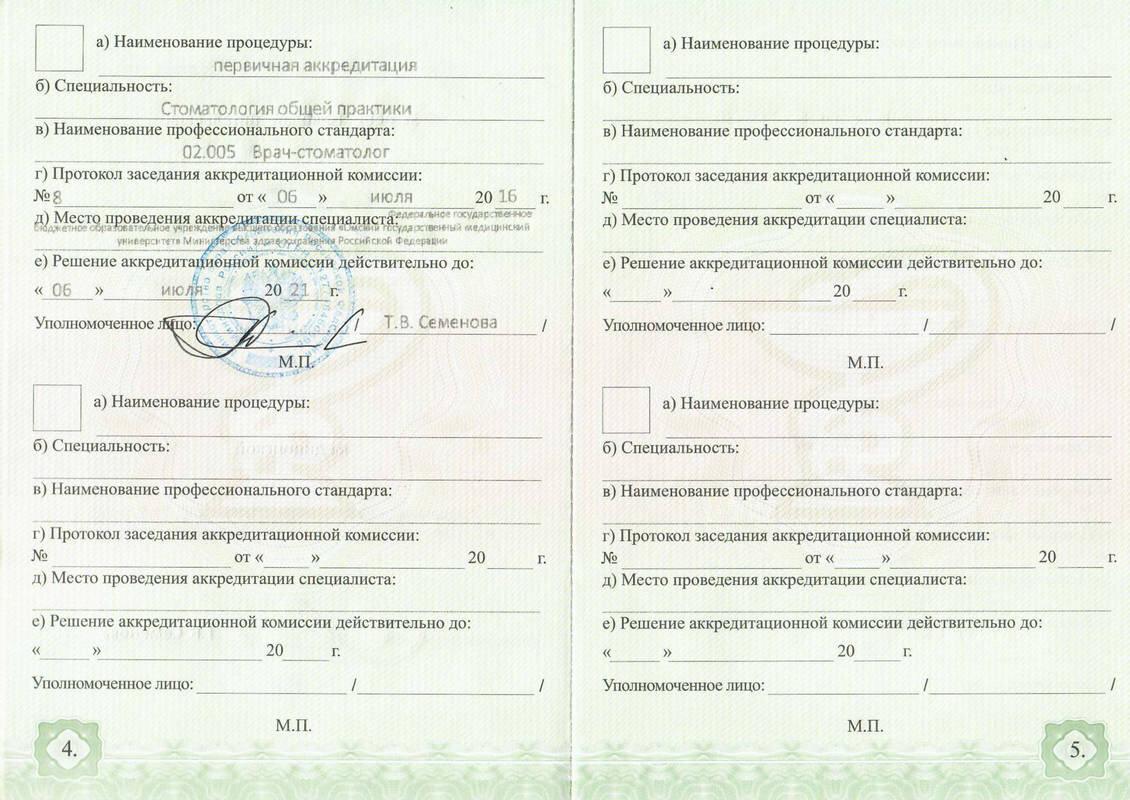 а) Наименование процедуры:
первичная аккредитация
б) Специальность:
Стоматология общей практики
в) Наименование профессионального стандарта:
02.005 Врач-стоматолог
г) Протокол заседания аккредитационной комиссии:
№ 8 от « 06 » июля 20 16 г.
д) Место проведения аккредитации специалиста: Федеральное государственное
бюджетное образовательное учреждение высшего образования «Омский государственный медицинский
университет» Министерства здравоохранения Российской Федерации
е) Решение аккредитационной комиссии действительно до:
« 06 » июля 20 21 г.
Уполномоченное лицо: / Т.В. Семенова /
М.П.
а) Наименование процедуры:
б) Специальность:
в) Наименование профессионального стандарта:
г) Протокол заседания аккредитационной комиссии:
№ от « » 20 г.
д) Место проведения аккредитации специалиста:
е) Решение аккредитационной комиссии действительно до:
« » 20 г.
Уполномоченное лицо: / /
М.П.
4.
а) Наименование процедуры:
б) Специальность:
в) Наименование профессионального стандарта:
г) Протокол заседания аккредитационной комиссии:
№ от « » 20 г.
д) Место проведения аккредитации специалиста:
е) Решение аккредитационной комиссии действительно до:
« » 20 г.
Уполномоченное лицо: / /
М.П.
а) Наименование процедуры:
б) Специальность:
в) Наименование профессионального стандарта:
г) Протокол заседания аккредитационной комиссии:
№ от « » 20 г.
д) Место проведения аккредитации специалиста:
е) Решение аккредитационной комиссии действительно до:
« » 20 г.
Уполномоченное лицо: / /
М.П.
5.